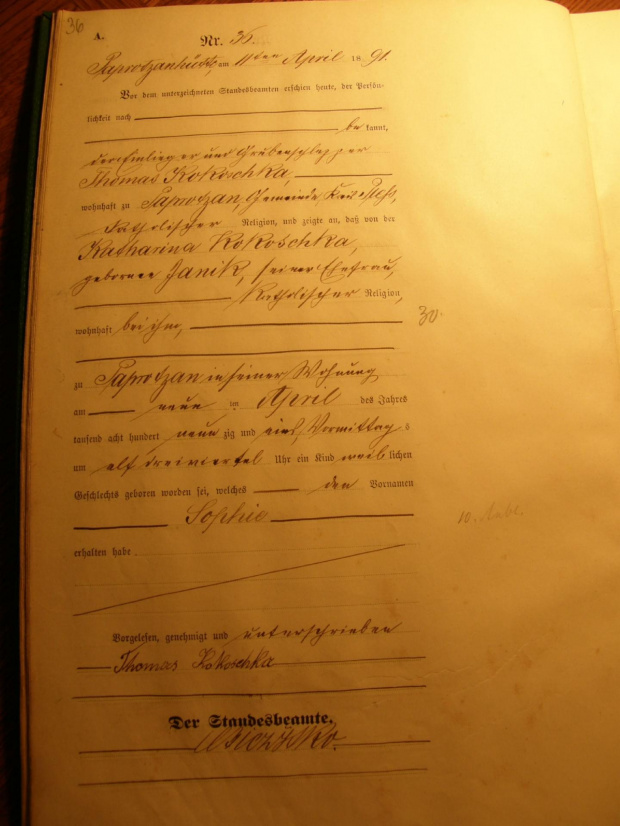 36
A.
Nr. 35.
Paprotzanhütte, am 11ten April 1891.
Vor dem unterzeichneten Standesbeamten erschien heute, der Persön-
lichkeit nach
be kannt,
der Einlieger und Grubenschlepper
Thomas Kokoschka,
wohnhaft zu Paprotzan, Gemeinde, Kreis Pleß,
katholischer Religion, und zeigte an, daß von der
Katharina Kokoschka,
geborenen Janik, seiner Ehefrau,
katholischer Religion,
wohnhaft bei ihm,
30.
zu Paprotzan in seiner Wohnung
am neun ten April des Jahres
tausend acht hundert neun zig und eins, Vormittag s
um elf dreiviertel Uhr ein Kind weib lichen
Geschlechts geboren worden sei, welches den Vornamen
Sophie
10.
erhalten habe.
Vorgelesen, genehmigt und unterschrieben
Thomas Kokoschka
Der Standesbeamte.